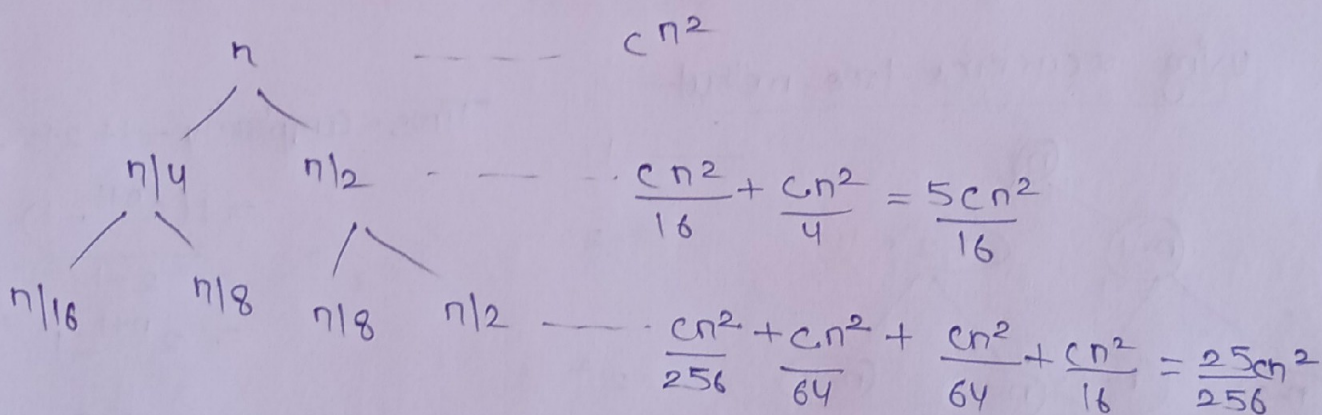 n ---- cn²
n/4 n/2 - - - cn²/16 + cn²/4 = 5cn²/16
n/16 n/8 n/8 n/2 --- cn²/256 + cn²/64 + cn²/64 + cn²/16 = 25cn²/256